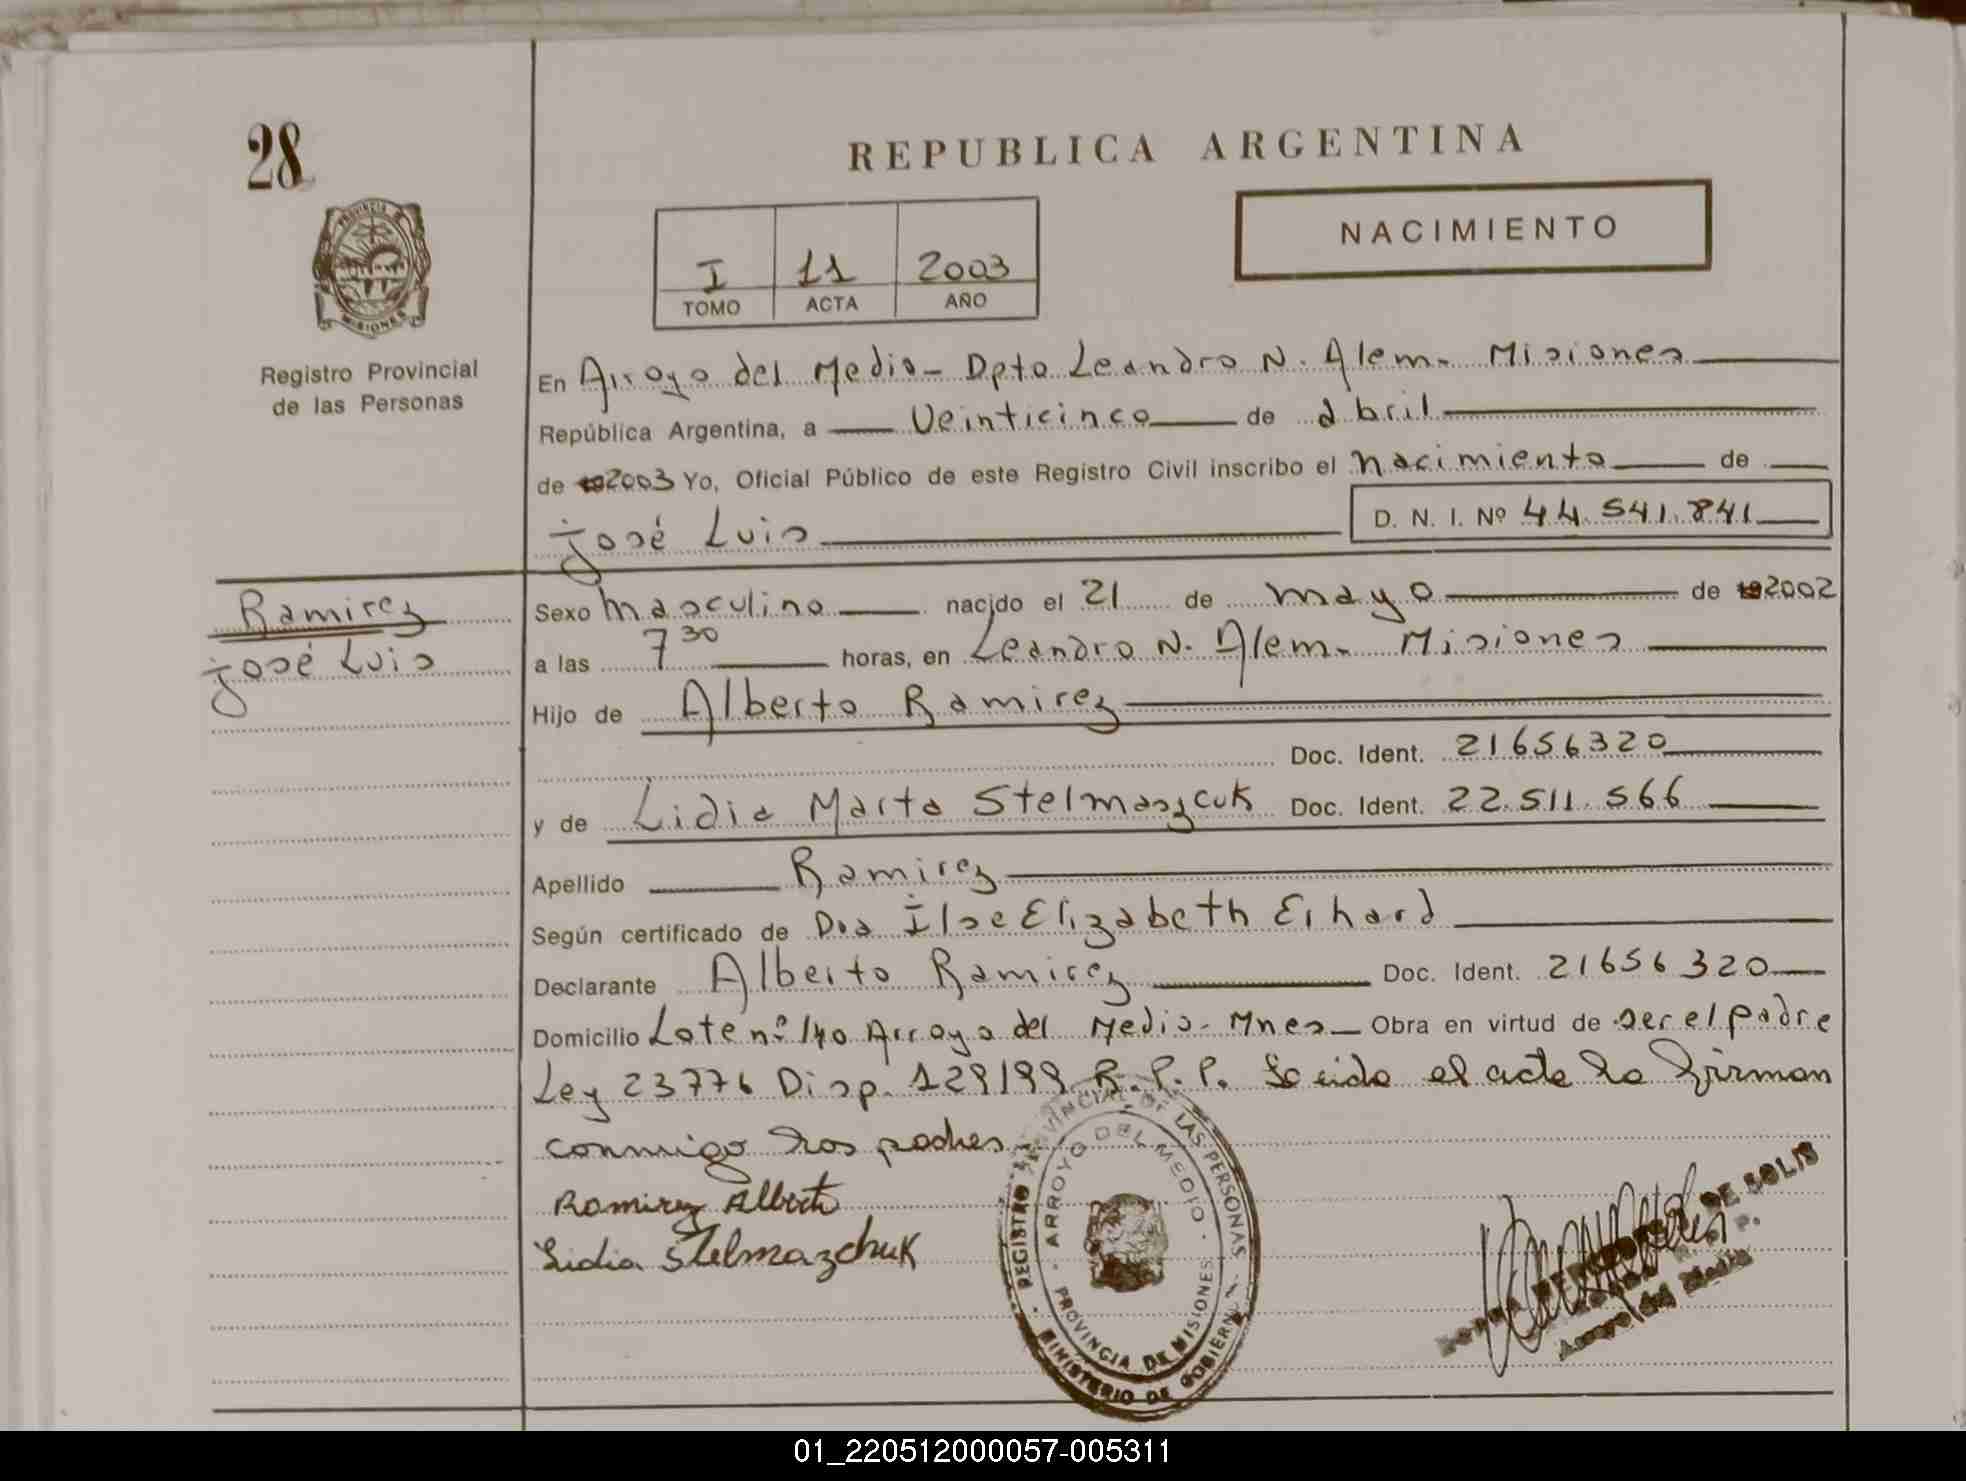 28
REPUBLICA ARGENTINA
PROVINCIA DE MISIONES
I 11 2003
TOMO ACTA AÑO
NACIMIENTO
Registro Provincial
de las Personas
En Arroyo del Medio - Dpto Leandro N. Alem - Misiones
República Argentina, a Veinticinco de abril
de 2003 Yo, Oficial Público de este Registro Civil inscribo el nacimiento de
José Luis D. N. I. Nº 44.541.841
Ramirez
José Luis
Sexo masculino nacido el 21 de mayo de 2002
a las 7 30 horas, en Leandro N. Alem - Misiones
Hijo de Alberto Ramirez
Doc. Ident. 21656320
y de Lidia Marta Stelmaszcuk Doc. Ident. 22.511.566
Apellido Ramirez
Según certificado de Dra Ilse Elizabeth Erhard
Declarante Alberto Ramirez Doc. Ident. 21656320
Domicilio Lote nº 140 Arroyo del Medio - Mnes - Obra en virtud de ser el padre
Ley 23776 Disp. 129/99 R.P.P. Leido el acta la firman
conmigo los padres
Ramirez Alberto
Lidia Stelmazchuk
REGISTRO PROVINCIAL DE LAS PERSONAS
ARROYO DEL MEDIO
PROVINCIA DE MISIONES
MINISTERIO DE GOBIERNO
DE SOLIS
Arroyo del Medio
01_220512000057-005311